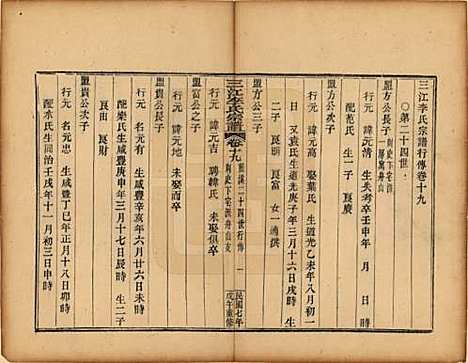 三江李氏宗譜行傳卷十九
○第二十四世
盟方公長子
行元 諱元清 生失考卒壬申年 月 日
配范氏 生一子 良慶
盟方公次子
行元 諱元高 娶葉氏 生道光乙未年八月初一
日 又袁氏生道光庚子年三月十六日戌時
二子 良明 良富 女一適顏
盟富公之子
行元 諱元吉 聘韓氏 未娶俱卒
三江李氏宗譜 卷十九
民國七年
戊午重修
盟貴公長子
行元 諱元地 未娶而卒
盟貴公次子
行元 諱元有 生咸豐辛亥年六月廿六日未時
配樂氏生咸豐庚申年三月十七日辰時 生二子
良甫 良月
盟貴公三子
行元 諱元旺 生咸豐丁巳年正月十八日卯時
配水氏生同治壬戌年十一月初三日申時